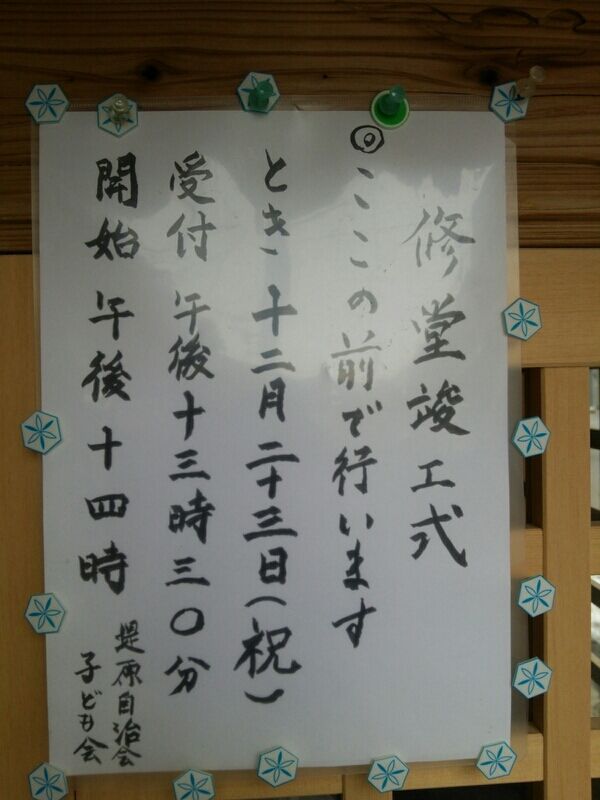 修堂竣工式
◎ここの前で行います
とき 十二月二十三日(祝)
受付 午後十三時三〇分
開始 午後十四時
堤原自治会
子ども会